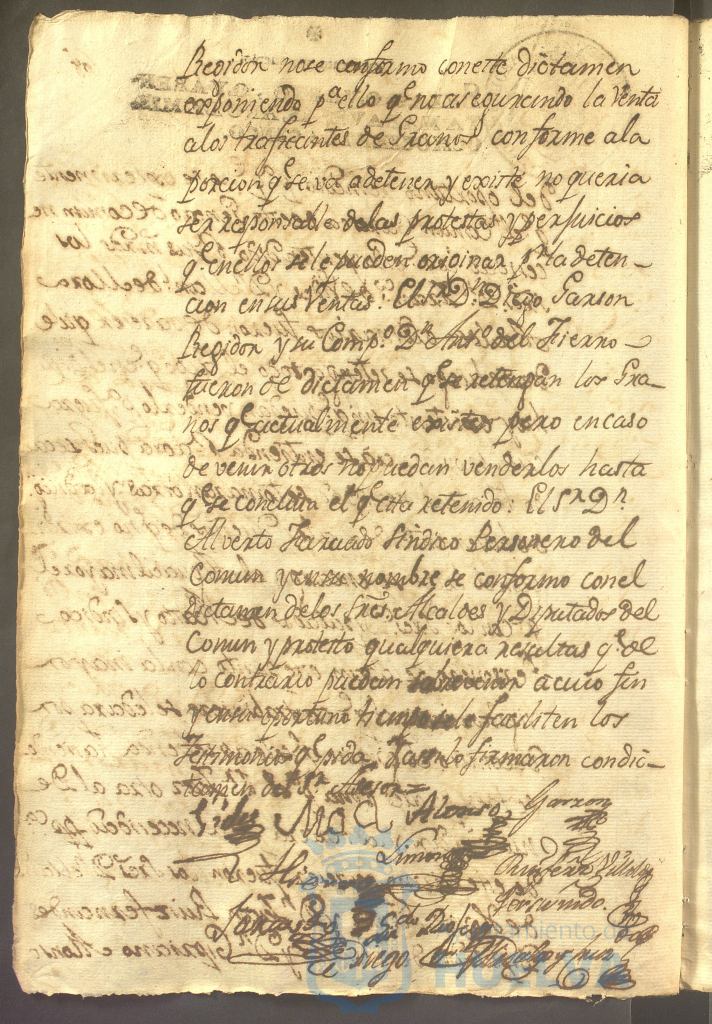 Regidor nose conformo coneste dictamen
exponiendo pª ello qe no asegurando la venta
alos traficantes de Granos, conforme ala
porcion qe se va adetener y existe no queria
ser responsable delas protestas y perjuicios
qe enellos se le puedan originar pr la deten–
cion en sus Ventas: El Sr Dn Diego Garson
Regidor y su Comp.º Dn Antº del Fierro –
fueron de dictamen qe se retengan los Gra–
nos qe actualmente existen pero encaso
de venir otros no puedan venderlos hasta
qe se concluia el qe esta retenido: El Sr Dn
Alverto Faxuado Sindico Personero del
Comun y en su nombre se conformo conel
dictamen delos Sres Alcaldes y Diputados del
Comun y protesto qualquiera resultas qe de
lo contrario puedan sobrevenir acuio fin
y en su oportuno tiempo se le faciliten los
Testimonios qe pida, y asi lo firmaron condic–
tamen del Sr Asesor=
Alonso Garzon
Limon
Diego
Ayuntamiento de
HUELVA